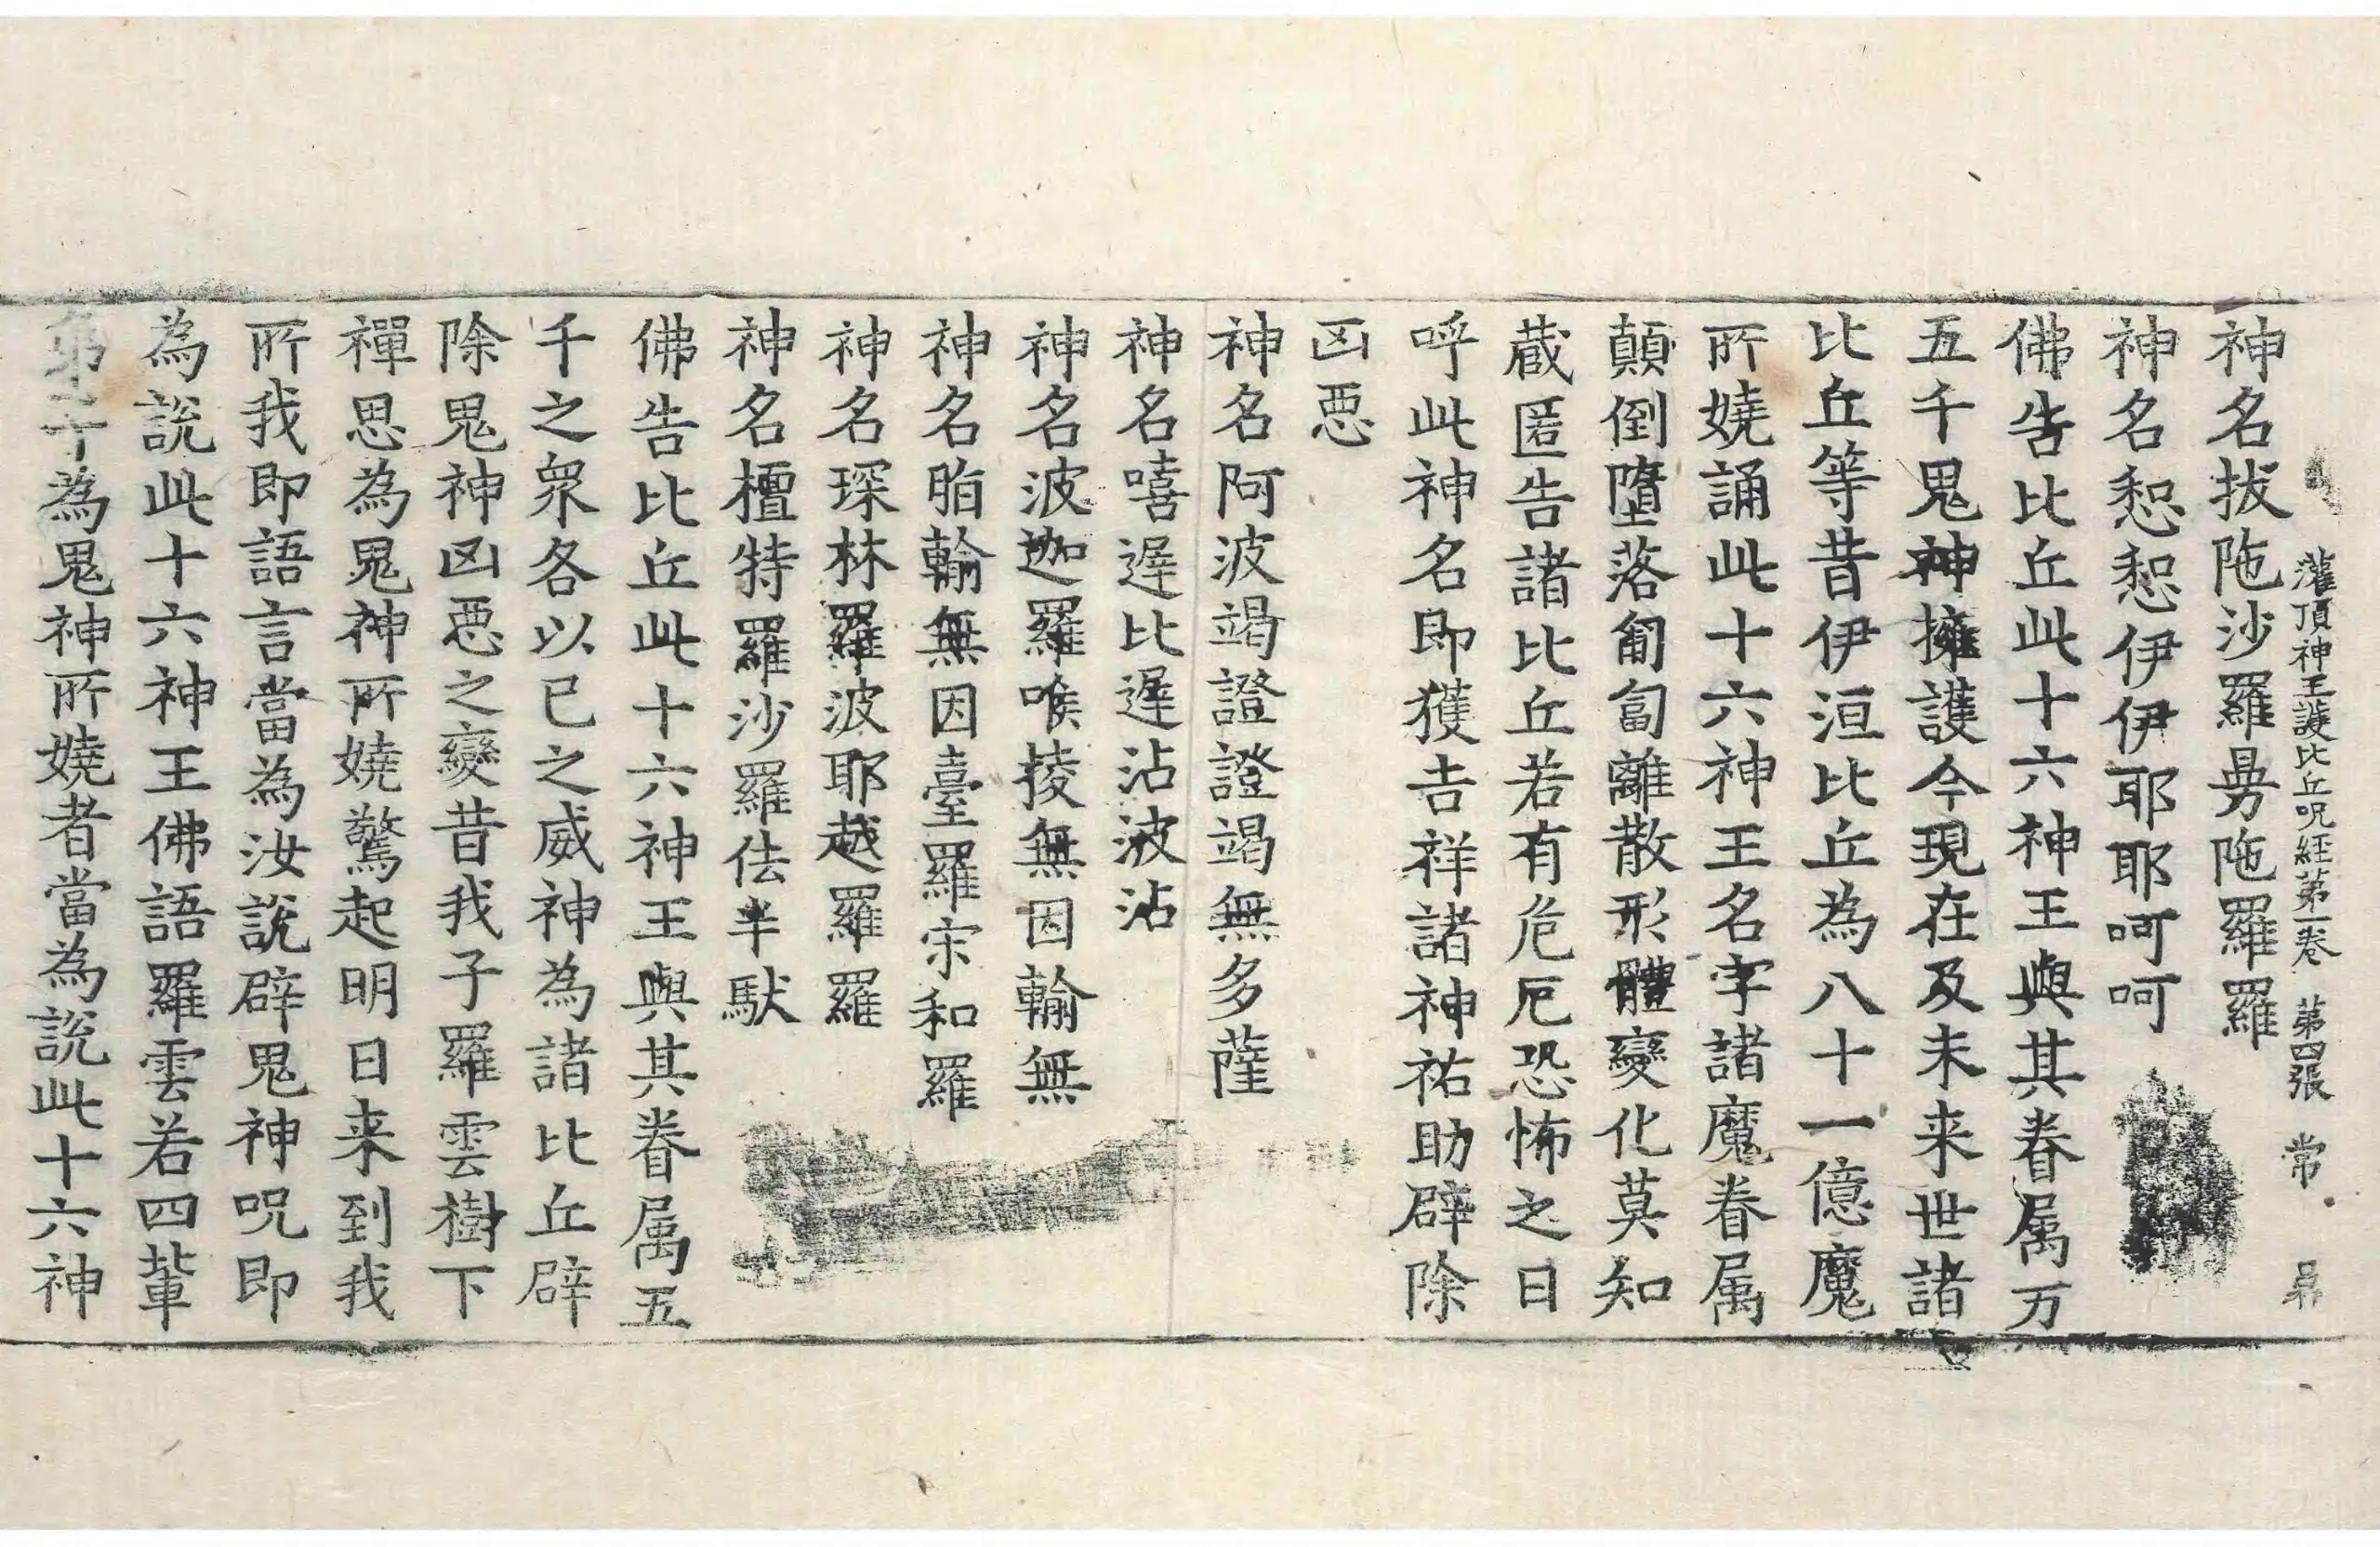 灌頂神王護比丘呪経第一卷 第四張 常
神名拔陁沙羅曼陁羅羅
神名惒惒伊伊耶耶呵呵
佛告比丘此十六神王與其眷属万
五千鬼神擁護今現在及未来世諸
比丘等昔伊洹比丘為八十一億魔
所嬈誦此十六神王名字諸魔眷属
顛倒墮落匍匐離散形體變化莫知
蔵匿告諸比丘若有危厄恐怖之日
呼此神名即獲吉祥諸神祐助辟除
凶悪
神名阿波竭證證竭無多薩
神名嘻遅比遅沾波沾
神名波迦羅喉掕無因輸無
神名脂輸無因臺羅宗和羅
神名琛林羅波耶越羅羅
神名檀特羅沙羅佉羊馱
佛告比丘此十六神王與其眷属五
千之衆各以已之威神為諸比丘辟
除鬼神凶悪之變昔我子羅雲樹下
禪思為鬼神所嬈驚起明日来到我
所我即語言當為汝說辟鬼神呪即
為說此十六神王佛語羅雲若四輩
弟子為鬼神所嬈者當為說此十六神